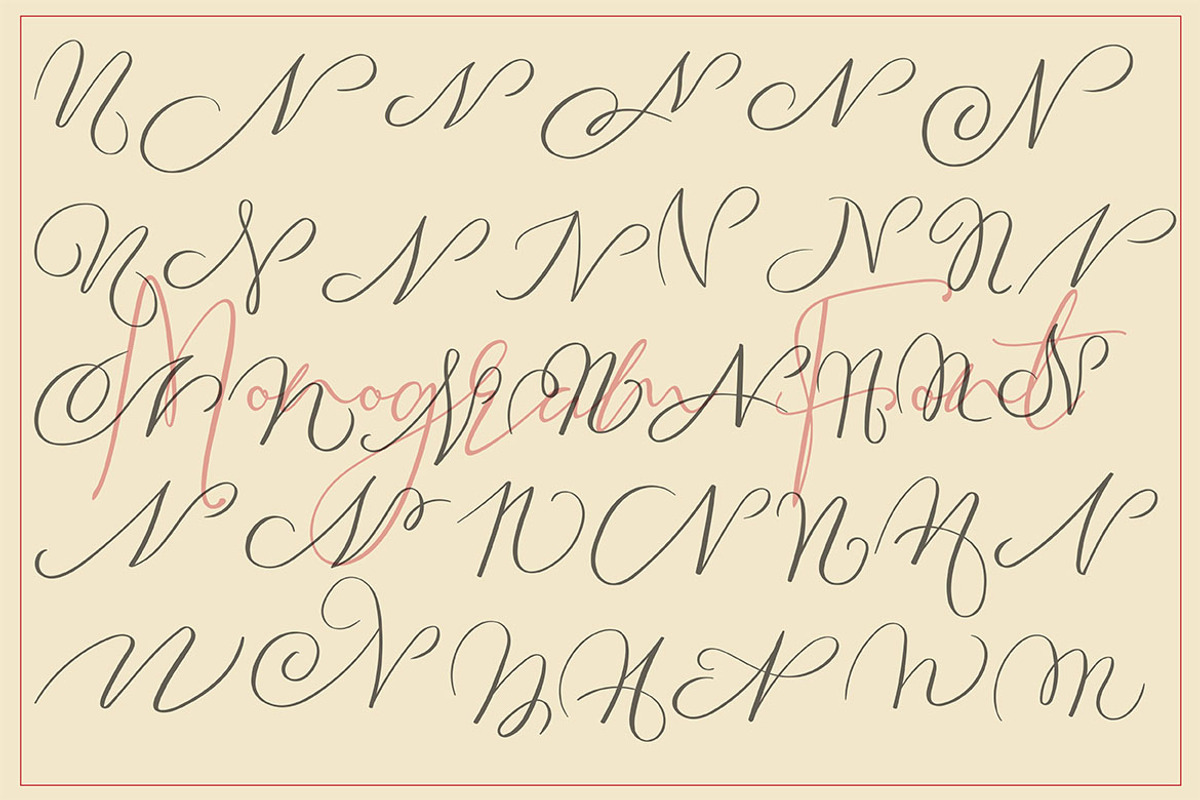 N N N N N N
N N N N N N N N
N N N N N N N N
Monogram Font
N N N N N N N
N N N N N N N